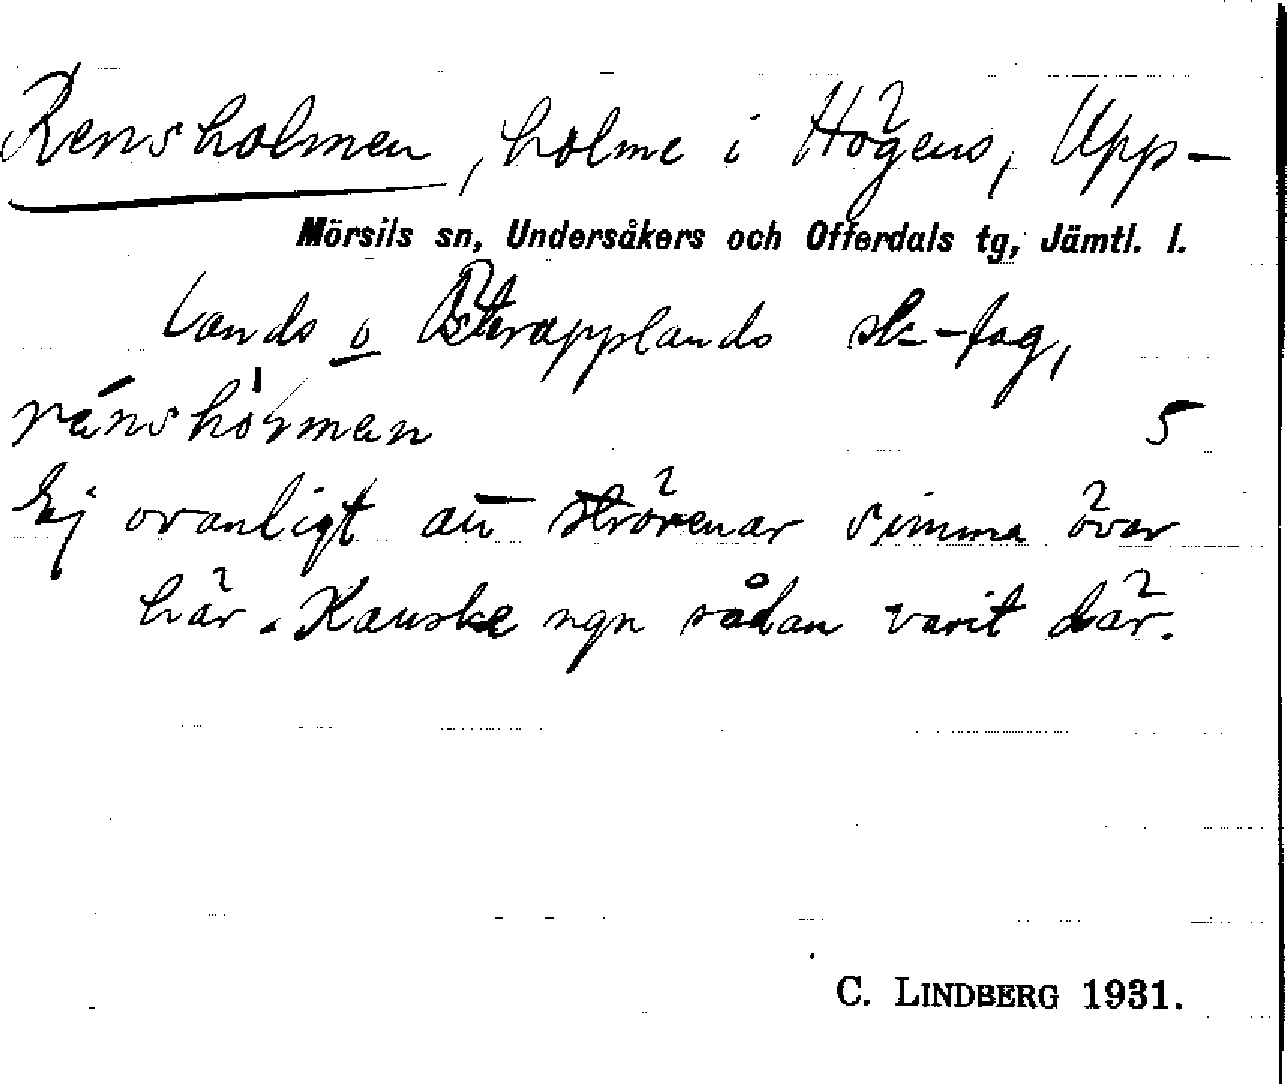 Rensholmen, holme i Högens, Upp-
Mörsils sn, Undersåkers och Offerdals tg, Jämtl. l.
lands o Österupplands sk-lag,
5
Ej ovanligt att strörenar simma över
här. Kanske ngn sådan varit där.
C. LINDBERG 1931.